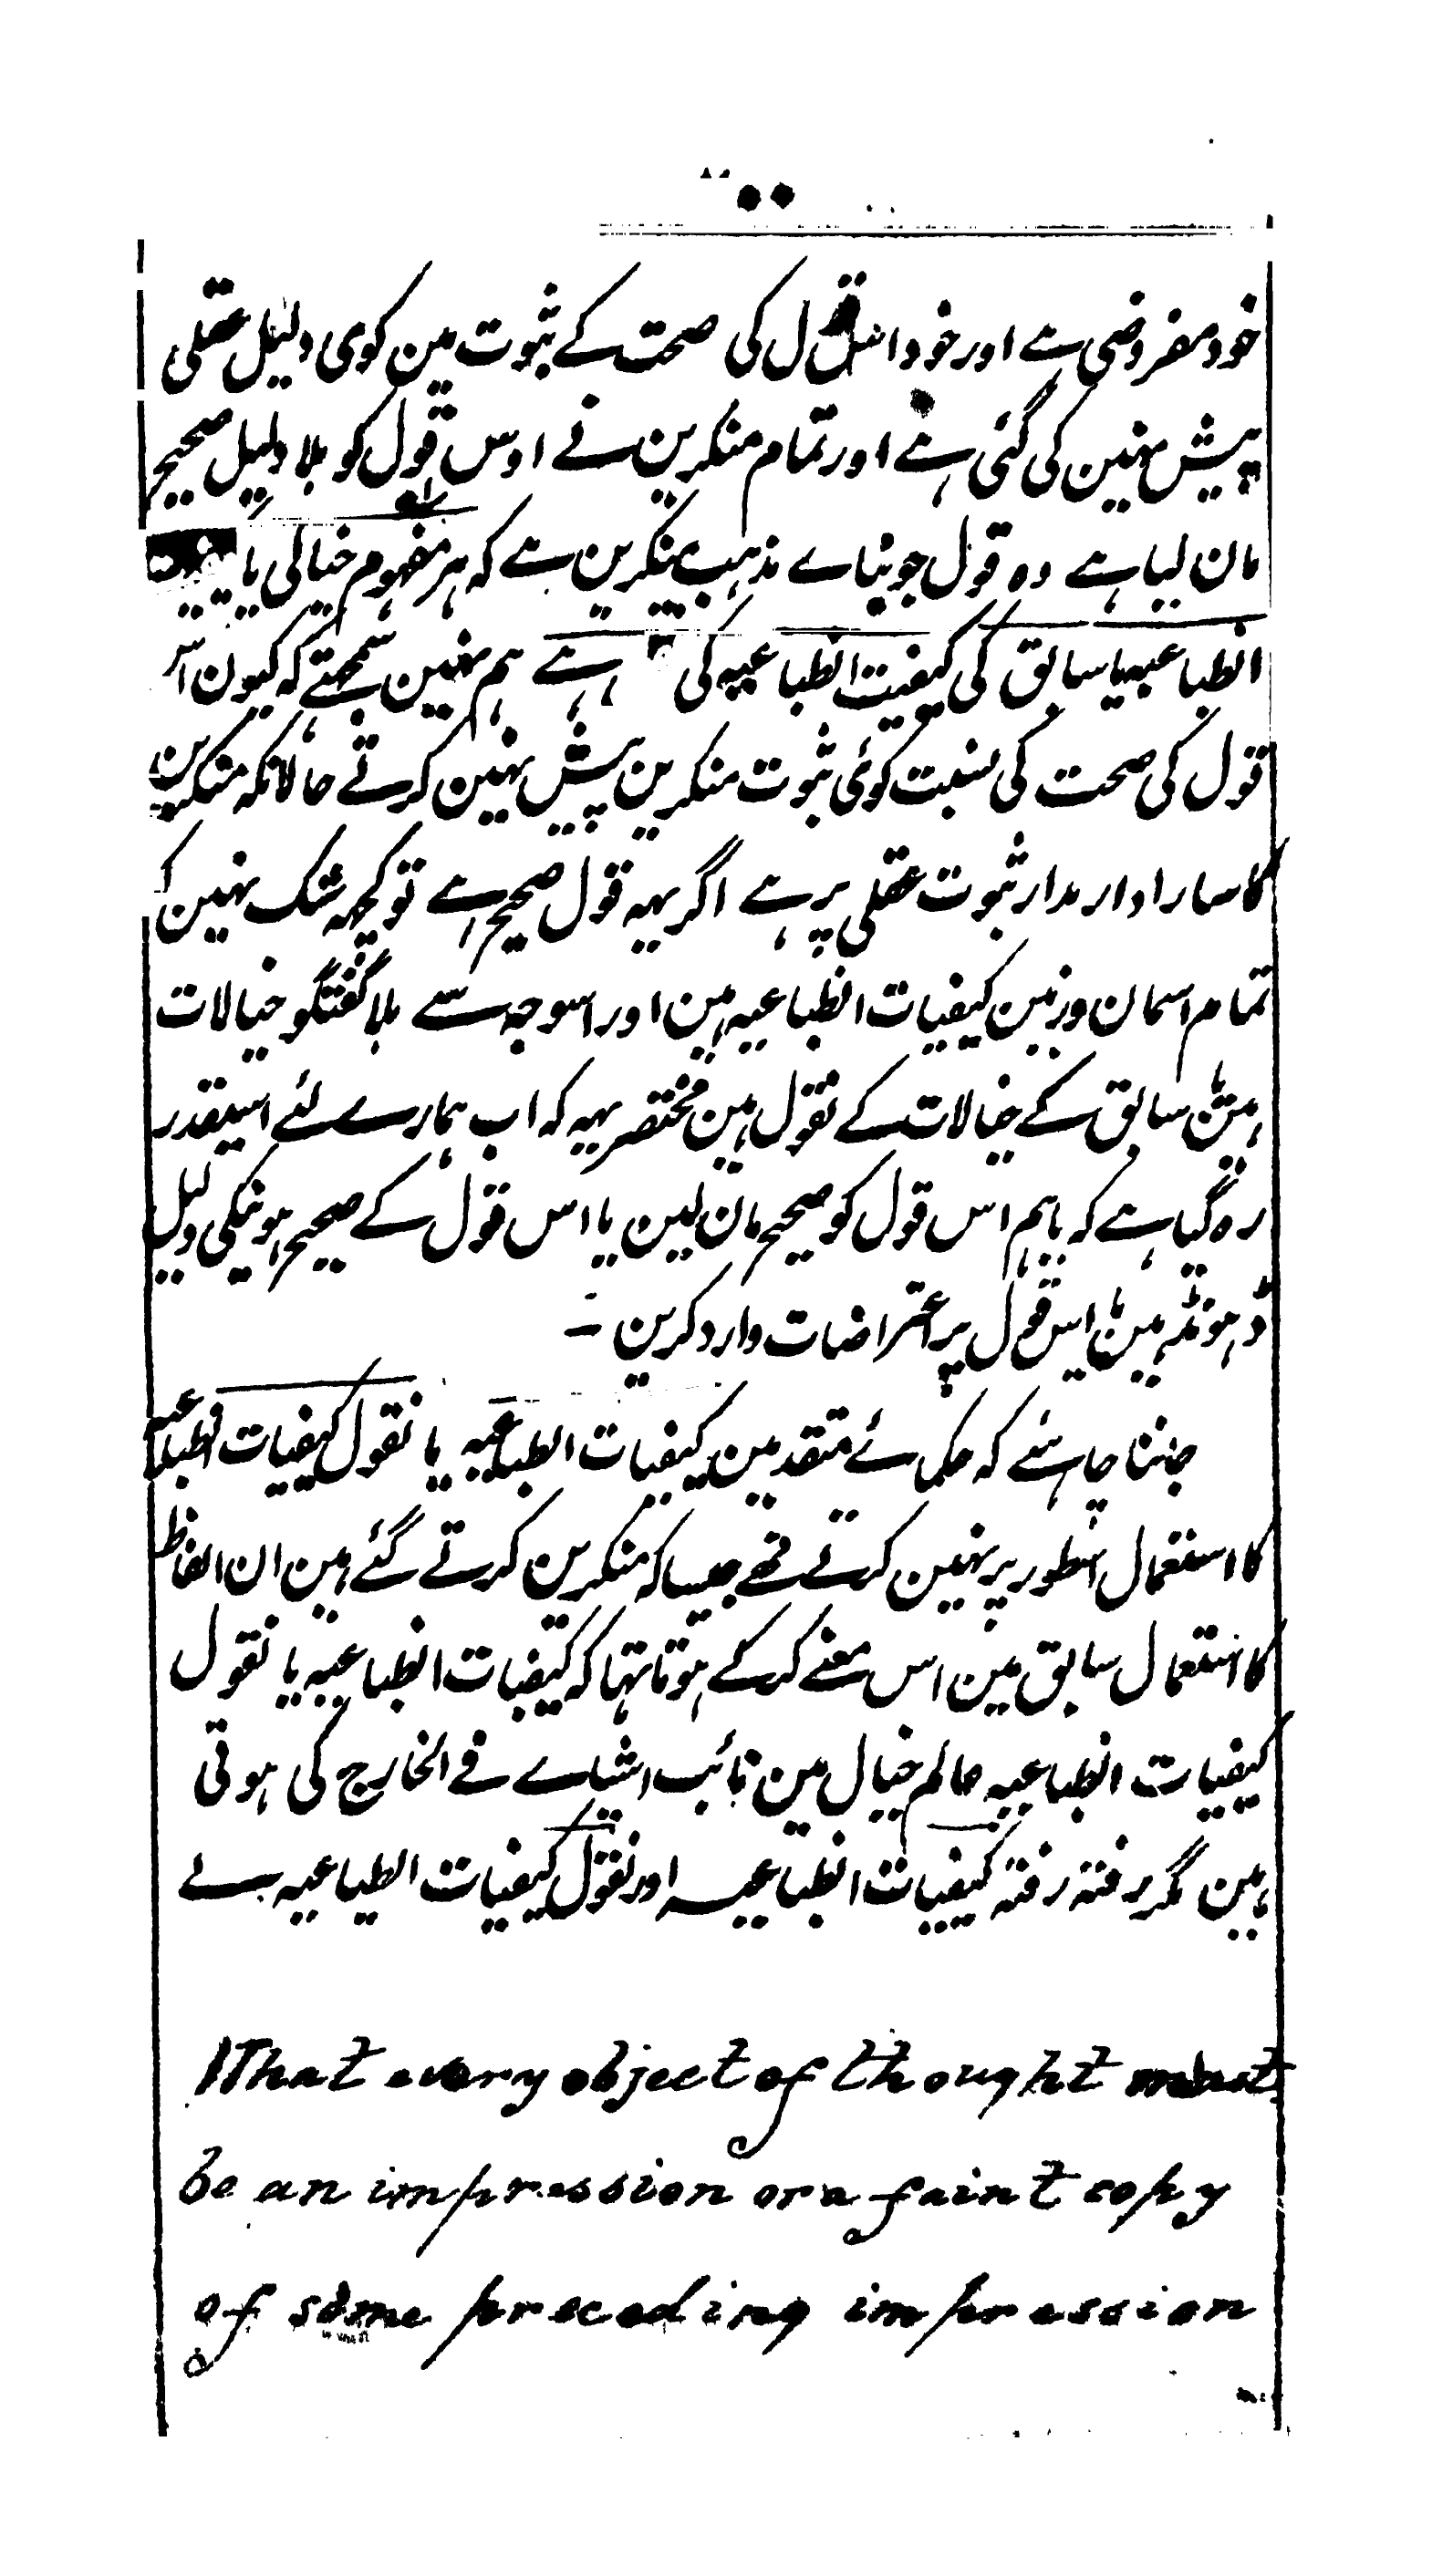 خود مفروضی ہے اور خود اس قول کی صحت کے ثبوت مین کوی دلیل عقلی
پیش نہین کی گئی ہے اور تمام منکرین نے اوس قول کو بلا دلیل صحیح
مان لیا ہے وہ قول جو بناے مذہب منکرین ہے کہ ہر مفہوم خیالی یا
انطباعیہ یا سابق کی کیفیت انطباعیہ کی ہے ہم نہین سمجھتے کہ کیون اس
قول کی صحت کی نسبت کوئی ثبوت منکرین پیش نہین کرتے حالانکہ منکرین
کا سارا دار مدار ثبوت عقلی پر ہے اگر یہہ قول صحیح ہے تو کچھہ شک نہین کہ
تمام اسمان و زمین کیفیات انطباعیہ ہین اور اسوجہ سے بلا گفتگو خیالات
ہین یا سابق کے خیالات کے نقول ہین مختصر یہہ کہ اب ہمارے لئے اسیقدر
رہ گیا ہے کہ یا ہم اس قول کو صحیح مان لین یا اس قول کے صحیح ہونیکی دلیل
ڈہونڈہین یا اس قول پر اعتراضات وارد کرین ۔
جاننا چاہئے کہ حکمائے متقدمین کیفیات انطباعیہ یا نقول کیفیات انطباعیہ
کا استعمال اسطور پر نہین کرتے تھے جیسا کہ منکرین کرتے گئے ہین ان الفاظ
کا استعمال سابق مین اس معنے کرکے ہوتا تہا کہ کیفیات انطباعیہ یا نقول
کیفیات انطباعیہ عالم خیال مین نائب اشیاے فے الخارج کی ہوتی
ہین مگر رفتہ رفتہ کیفیات انطباعیہ اور نقول کیفیات انطباعیہ نے
1 That every object of thought must
be an impression or a faint copy
of some preceding impression